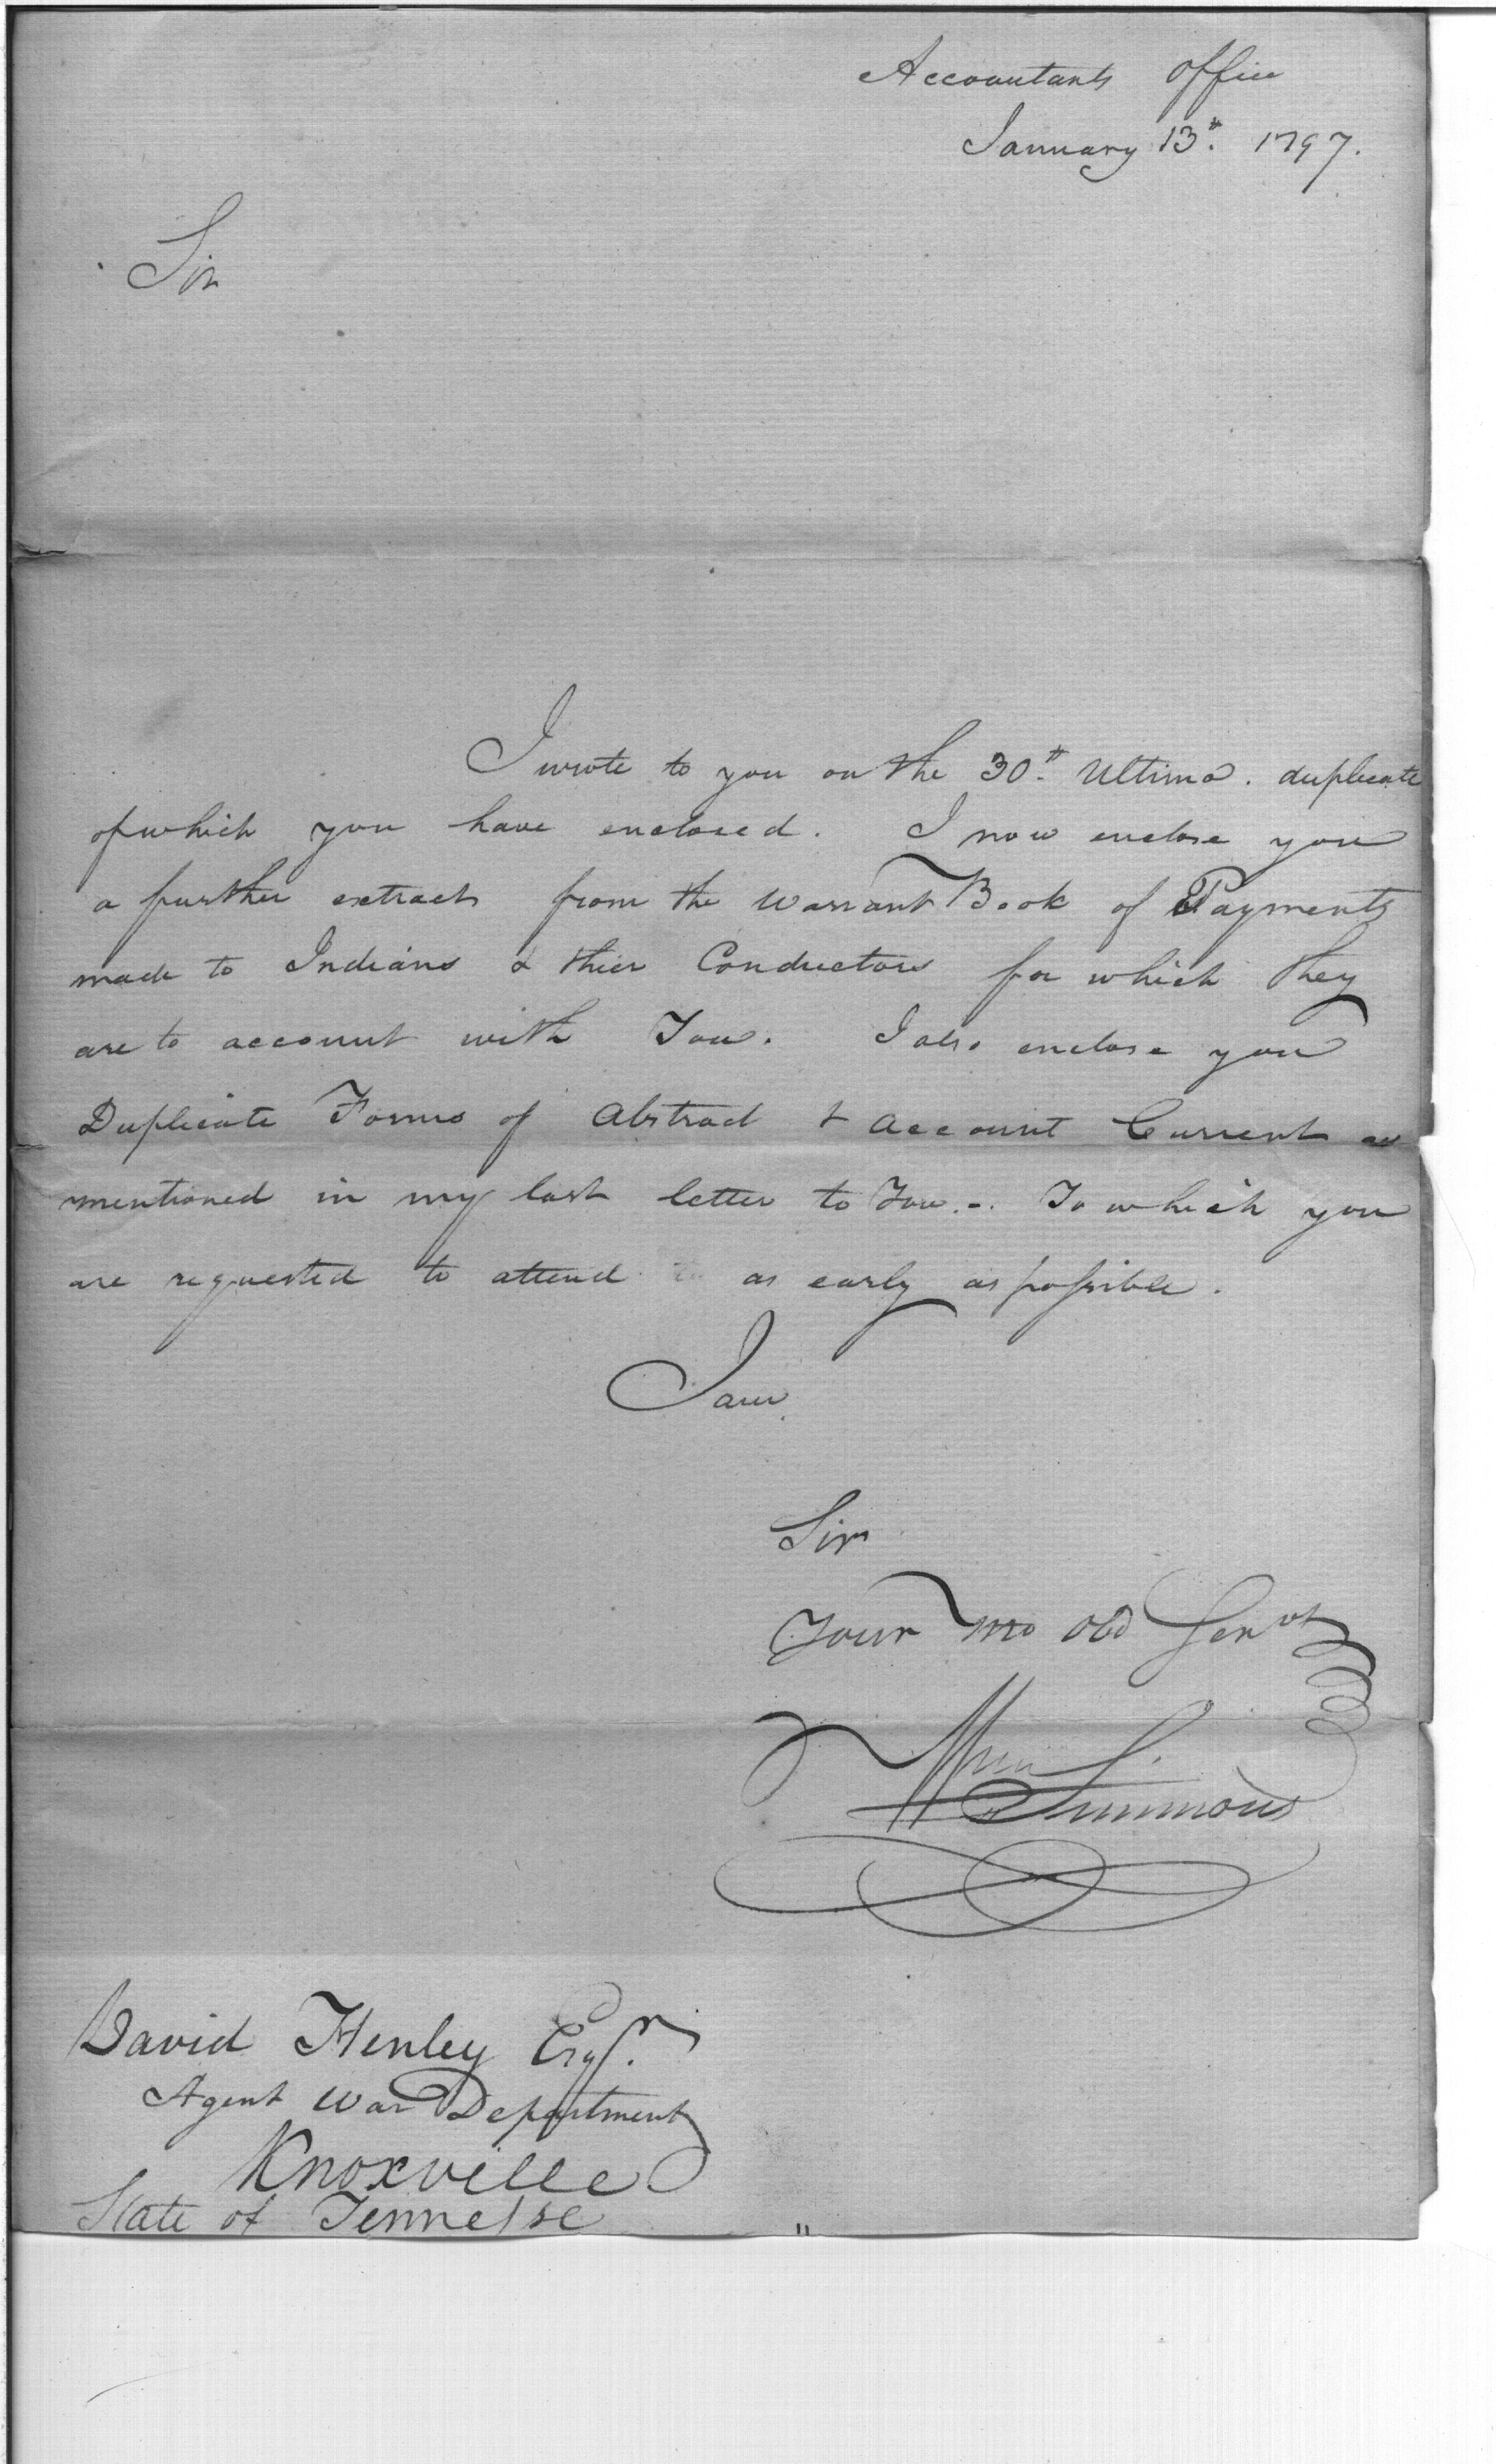 Accountants Office
January 13th. 1797.
Sir
I wrote to you on the 30th. Ultimo. duplicate
of which you have enclosed. I now enclose you
a further extract from the Warrant Book of Payments
made to Indians & thier Conductors for which they
are to account with You. I also enclose you
Duplicate Forms of Abstract & Account Current as
mentioned in my last letter to You.-. To which you
are requested to attend as early as possible.
I am
Sir
Your mo Obd Servt
Wm Simmons
David Henley Esqr.
Agent War Department
Knoxville
State of Tennesse